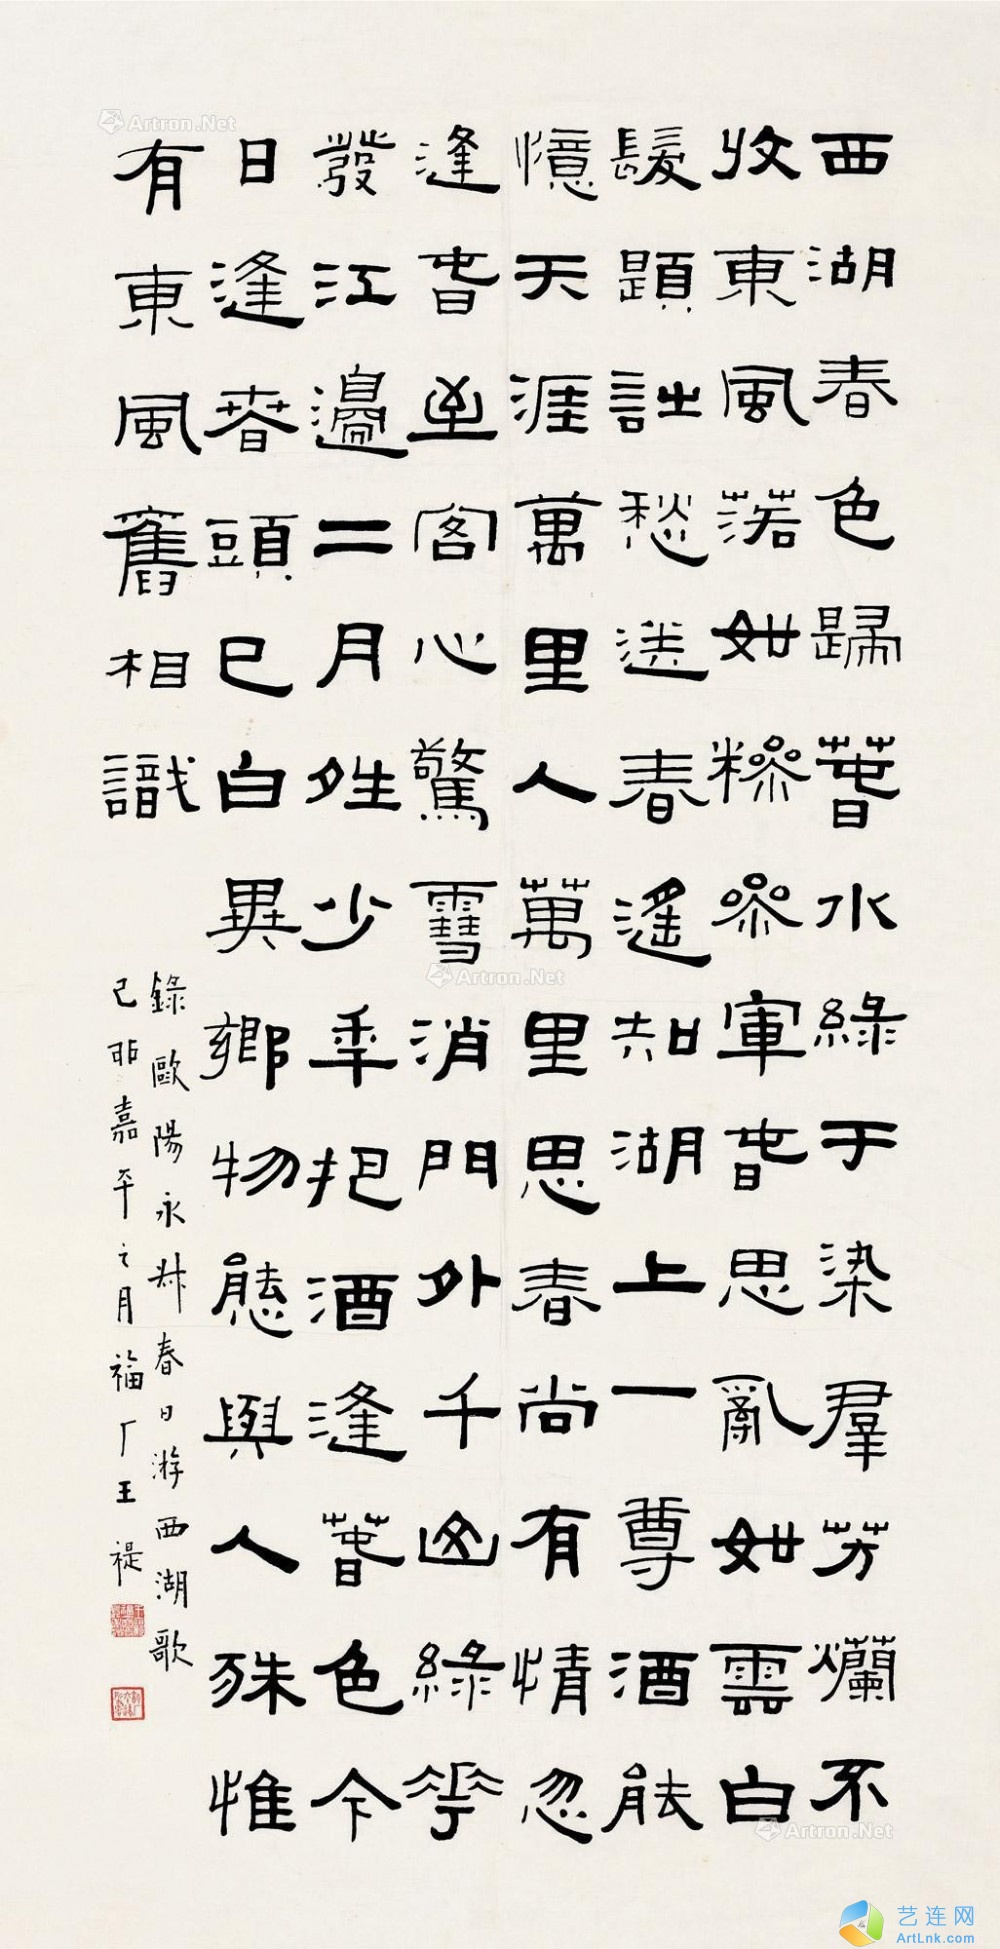 西湖春色歸春水綠于染羣芳爛不
收東風落如糝參軍春思亂如雲白
髮題詩愁送春遙知湖上一尊酒能
憶天涯萬里人萬里思春尚有情忽
逢春至客心驚雪消門外千山綠花
發江邊二月夝少年把酒逢春色今
日逢春頭已白異鄉物態與人殊惟
有東風舊相識
錄歐陽永叔春日游西湖歌
己卯嘉平之月福厂王禔
Artron.Net
Artron.Net
Artron.Net
艺连网
ArtLnk.com